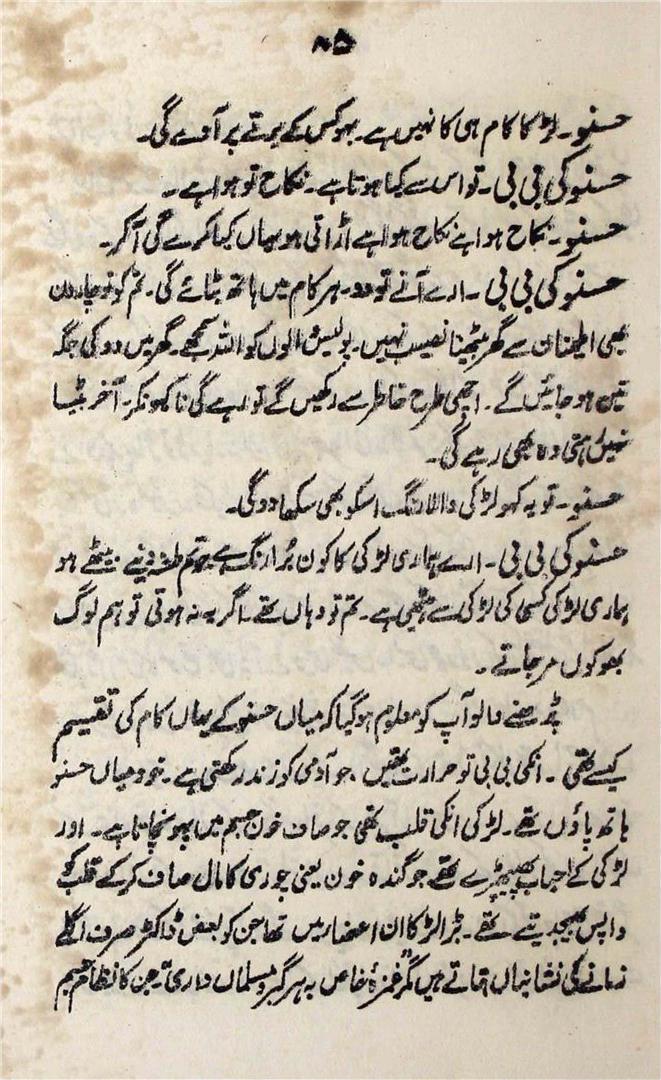 ۸۵
حسنو۔ لڑکا کام ہی کا نہیں ہے۔ بہو کس کے برتے پر آوے گی۔
حسنو کی بی بی۔ تو اس سے کیا ہوتا ہے۔ نکاح تو ہوا ہے۔
حسنو۔ نکاح ہوا ہے نکاح ہوا ہے اڑاتی ہو یہاں کیا کرے گی آکر۔
حسنو کی بی بی۔ ارے آنے تو دو۔ ہر کام میں ہاتھ بٹائے گی۔ تم کو تو چار دن
بھی اطمنان سے گھر بیٹھنا نصیب نہیں۔ پولیس والوں کو اللہ سمجھے۔ گھر میں دو کی جگہ
تین ہو جائیں گے۔ اچھی طرح خاطر سے رکھیں گے تو رہے گی نا کیونکر۔ آخر بٹیا
نہیں رہتی وہ بھی رہے گی۔
حسنو۔ تو یہ کہو لڑکی والا رنگ اسکو بھی سکھا دو گی۔
حسنو کی بی بی۔ ارے ہماری لڑکی کا کون بُرا رنگ ہے جو تم طعنہ دینے بیٹھے ہو
ہماری لڑکی کسی کی لڑکی سے ہیٹھی ہے۔ تم تو وہاں تھے۔ اگر یہ نہ ہوتی تو ہم لوگ
بھوکوں مر جاتے۔
پڑھنے والو آپ کو معلوم ہو گیا کہ میاں حسنو کے یہاں کام کی تقیسم
کیسے تھی۔ انکی بی بی تو حرارت تھیں، جو آدمی کو زندہ رکھتی ہے۔ خود میاں حسنو
ہاتھ پاؤں تھے۔ لڑکی انکی قلب تھی جو صاف خون جسم میں پہونچاتا ہے۔ اور
لڑکی کے احباب پھیپڑے تھے جو گندہ خون یعنی چوری کا مال صاف کر کے قلب کو
واپس بھیجدیتے تھے۔ بڑا لڑکا ان اعضار میں تھا جن کو بعض ڈاکٹر صرف اگلے
زمانے کی نشانیاں بتاتے ہیں مگر "غمزۂ خاص بہ ہر گبر و مسلماں داری"۔ جن کا نظام جسم